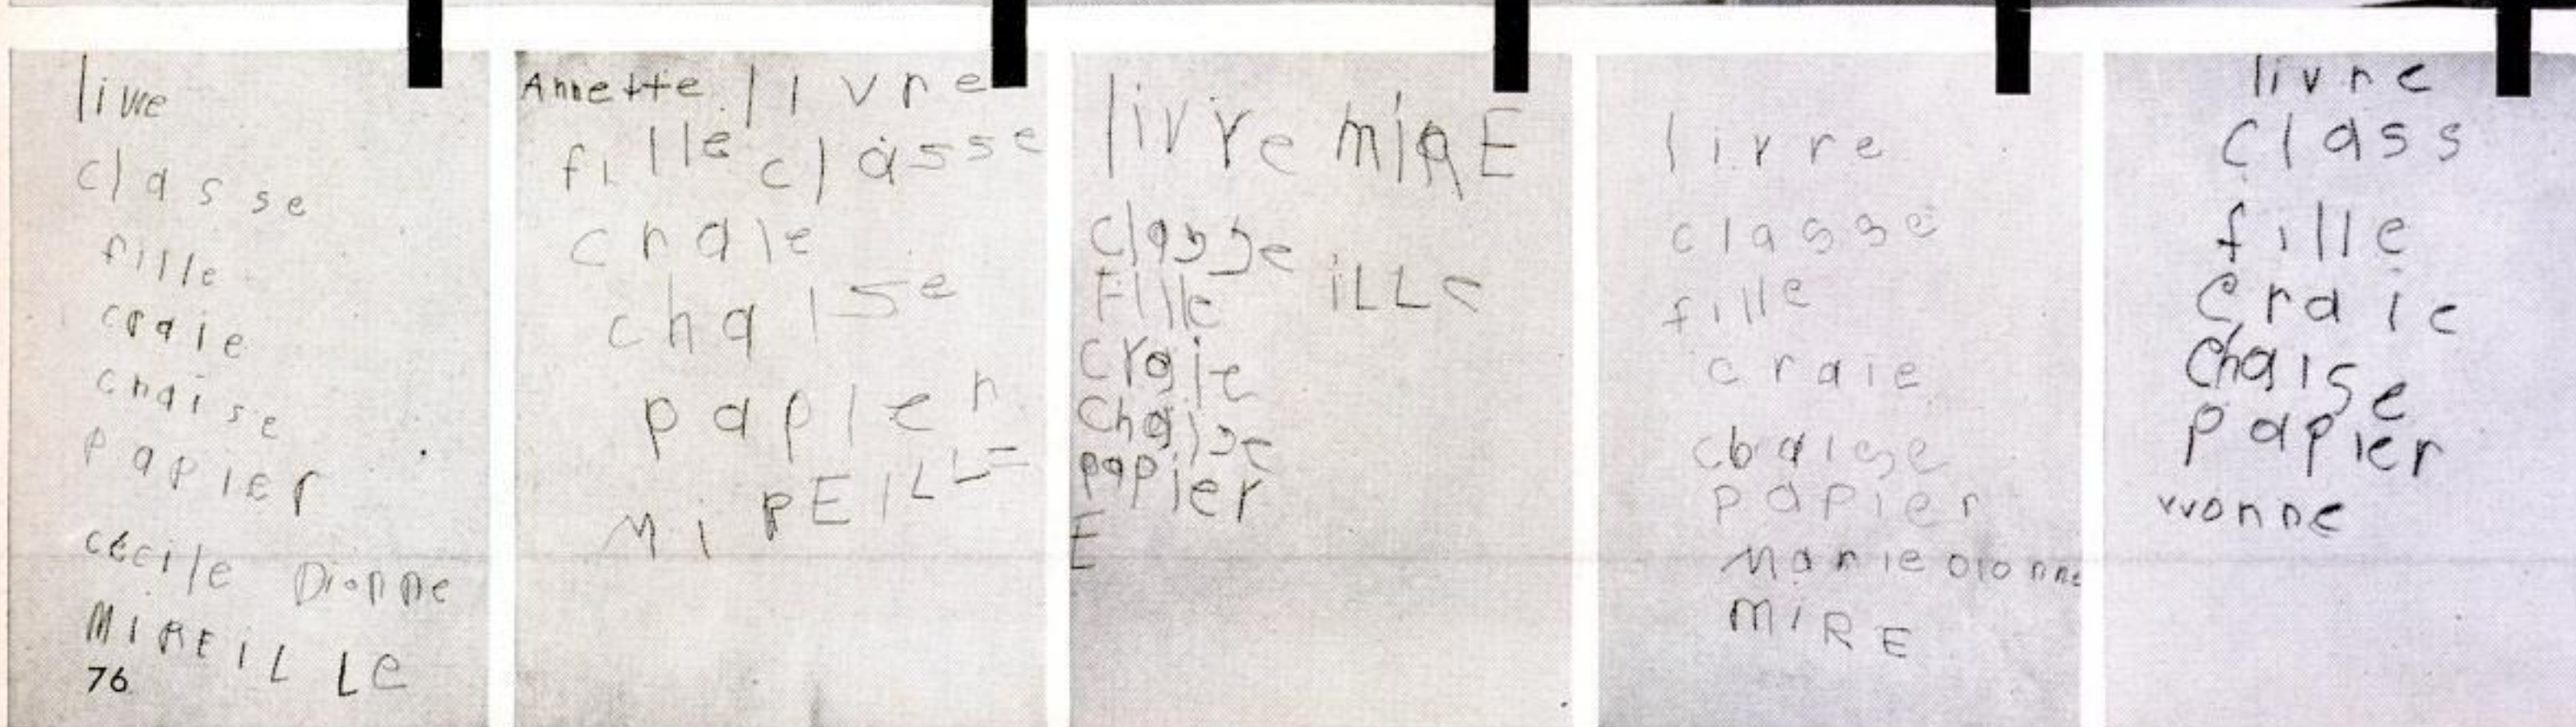 livre
classe
fille
craie
chaise
papier
cécile Dionne
MIREILLe
76
Annette livre
fille classe
craie
chaise
papier
MiREILLE
livre miRE
classe
Fille iLLe
craie
chaise
papier
E
livre
classe
fille
craie
chaise
papier
Marie Dionne
MiRE
livre
class
fille
craie
chaise
papier
yvonne